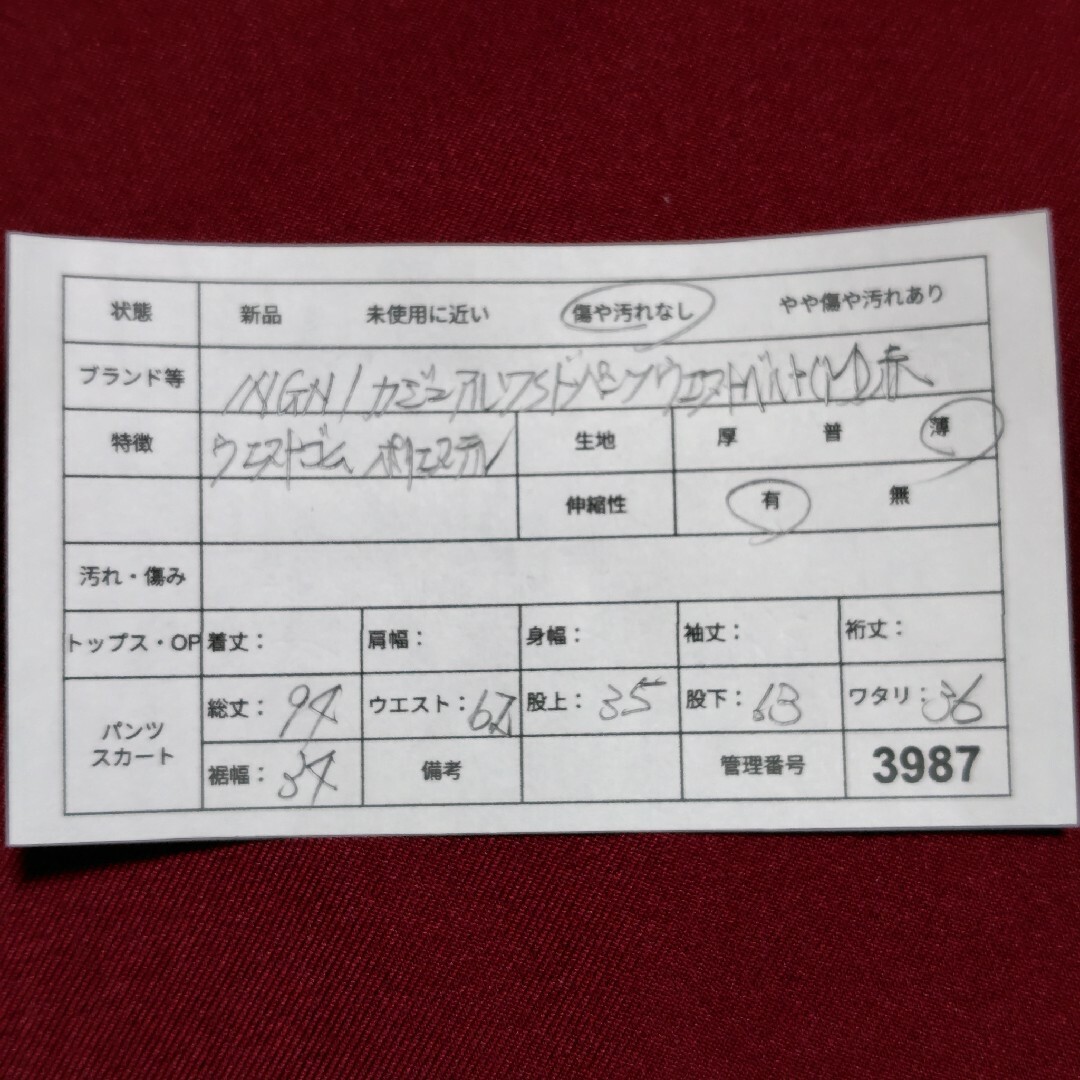 状態 新品 未使用に近い 傷や汚れなし やや傷や汚れあり
ブランド等 INGNI カジュアルワイドパンツ ウエストベルト(M)赤
特徴 ウエストゴム ポリエステル 生地 厚 普 薄
伸縮性 有 無
汚れ・傷み
トップス・OP 着丈： 肩幅： 身幅： 袖丈： 裄丈：
パンツ スカート 総丈：94 ウエスト：62 股上：35 股下：63 ワタリ：36
裾幅：34 備考 管理番号 3987